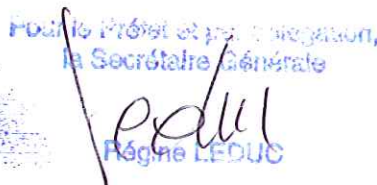 Pour le Préfet et par délégation,
la Secrétaire Générale
Régine LEDUC